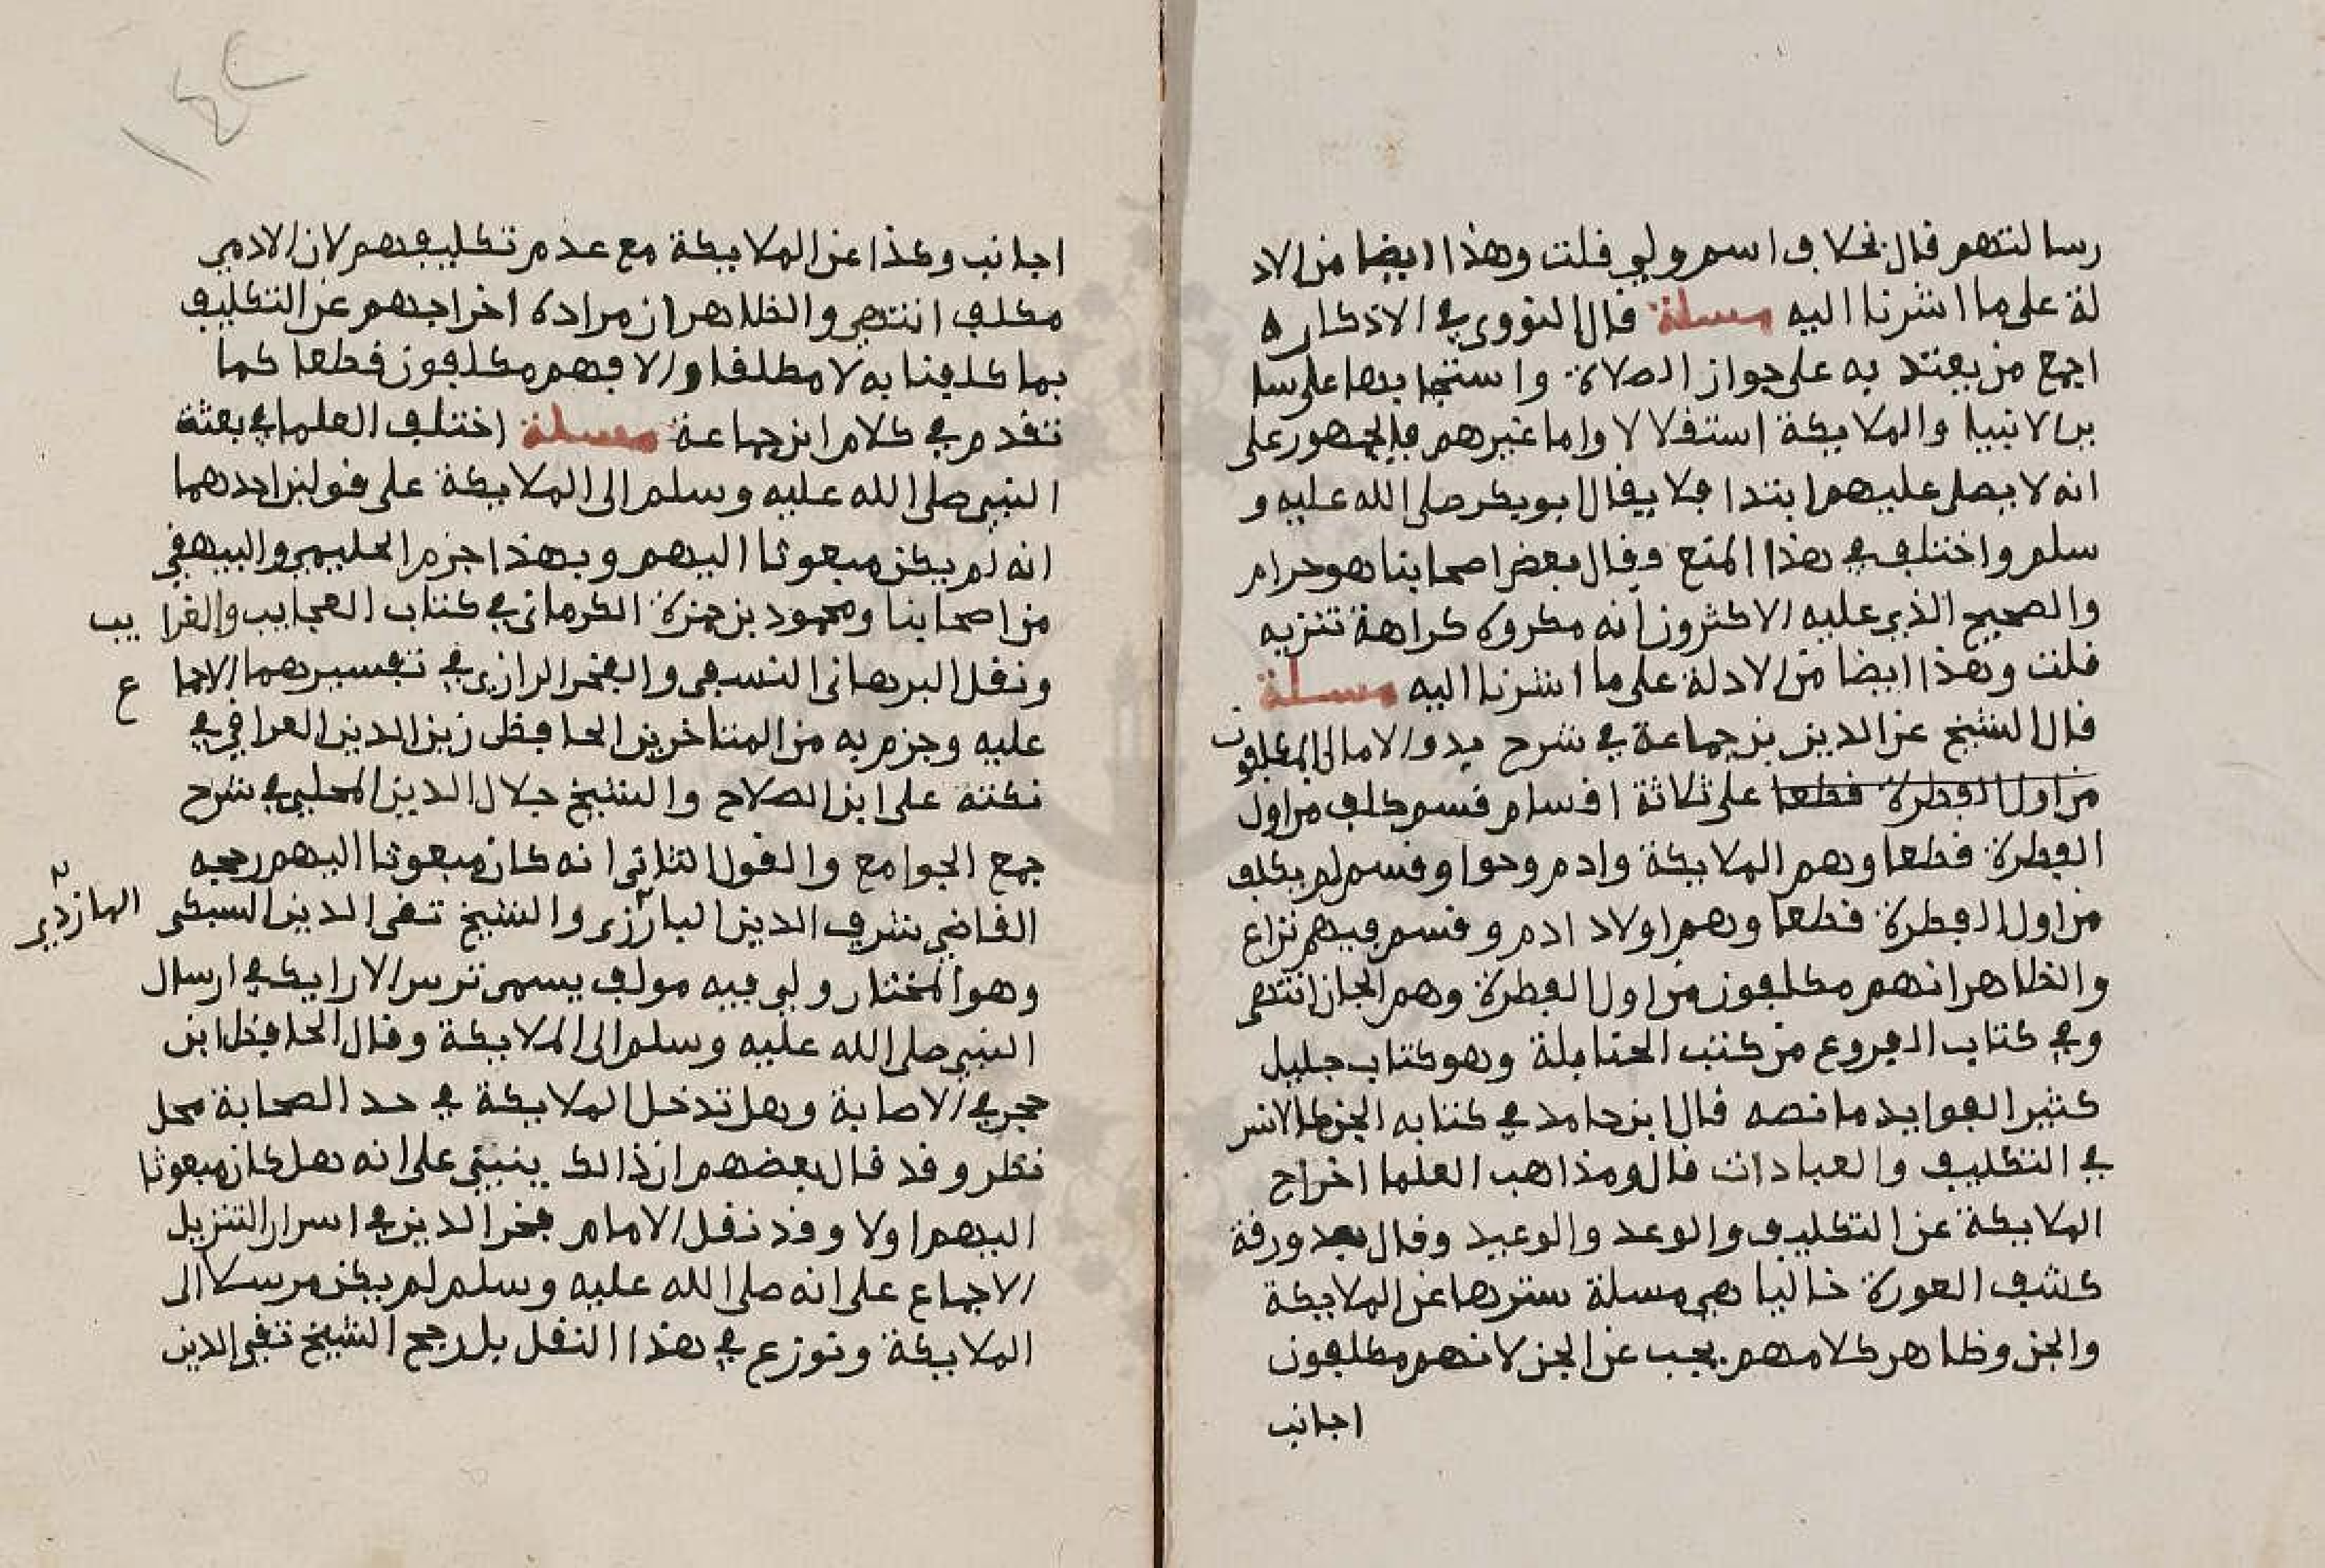 رسالتهم قال بخلاف اسم ولي قلت وهذا ايضا من الاد
لة على ما اشرنا اليه مسلة قال النووي في الاذكار ه
اجمع من يعتد به على جواز الصلاة واستحبابها على سا
ير الانبيا والملايكة استقلالا واما غيرهم فالجمهور على
انه لا يصلى عليهم ابتدا فلا يقال ابو بكر صلى الله عليه و
سلم واختلف في هذا المنع فقال بعض اصحابنا هو حرام
والصحيح الذي عليه الاكثرون انه مكروه كراهة تنزيه
قلت وهذا ايضا من الادلة على ما اشرنا اليه مسلة
قال الشيخ عز الدين بن جماعة في شرح بدو الامالي المكلفون
من اول الفطرة قطعا على ثلاثة اقسام قسم كلف من اول
الفطرة قطعا وهم الملايكة وادم وحوا وقسم لم يكلف
من اول الفطرة قطعا وهم اولاد ادم وقسم فيهم نزاع
والظاهر انهم مكلفون من اول الفطرة وهم الجان انتهى
وفي كتاب الفروع من كتب الحنابلة وهو كتاب جليل
كثير الفوايد ما نصه قال ابن حامد في كتابه الجن كالانس
في التكليف والعبادات قال ومذاهب العلما اخراج
الملايكة عن التكليف والوعد والوعيد وقال بعد ورقة
كشف العورة خاليا هي مسلة سترها عن الملايكة
والجن وظاهر كلامهم يجب عن الجن لانهم مكلفون
اجانب
١٤٢
اجانب وكذا عن الملايكة مع عدم تكليفهم لان الادمي
مكلف انتهى والظاهر ان مراده اخراجهم عن التكليف
بما كلفنا به لا مطلقا والا فهم مكلفون قطعا كما
تقدم في كلام ابن جماعة مسلة اختلف العلما في بعثة
النبي صلى الله عليه وسلم الى الملايكة على قولين احدهما
انه لم يكن مبعوثا اليهم وبهذا جزم الحليمي والبيهقي
من اصحابنا ومحمود بن حمزة الكرماني في كتاب العجايب والغرايب
ونقل البرهاني النسفي والفخر الرازي في تفسيرهما الاجماع
عليه وجزم به من المتاخرين الحافظ زين الدين العراقي في
نكته على ابن الصلاح والشيخ جلال الدين المحلي في شرح
جمع الجوامع والقول الثاني انه كان مبعوثا اليهم رجحه
القاضي شرف الدين البارزي والشيخ تقي الدين السبكي
وهو المختار ولي فيه مولف يسمى تزيين الارايك في ارسال
النبي صلى الله عليه وسلم الى الملايكة وقال الحافظ ابن
حجر في الاصابة وهل تدخل الملايكة في حد الصحابة محل
نظر وقد قال بعضهم ان ذالك ينبني على انه هل كان مبعوثا
اليهم اولا وقد نقل الامام فخر الدين في اسرار التنزيل
الاجماع على انه صلى الله عليه وسلم لم يكن مرسلا الى
الملايكة ونوزع في هذا النقل بل رجح الشيخ تقي الدين